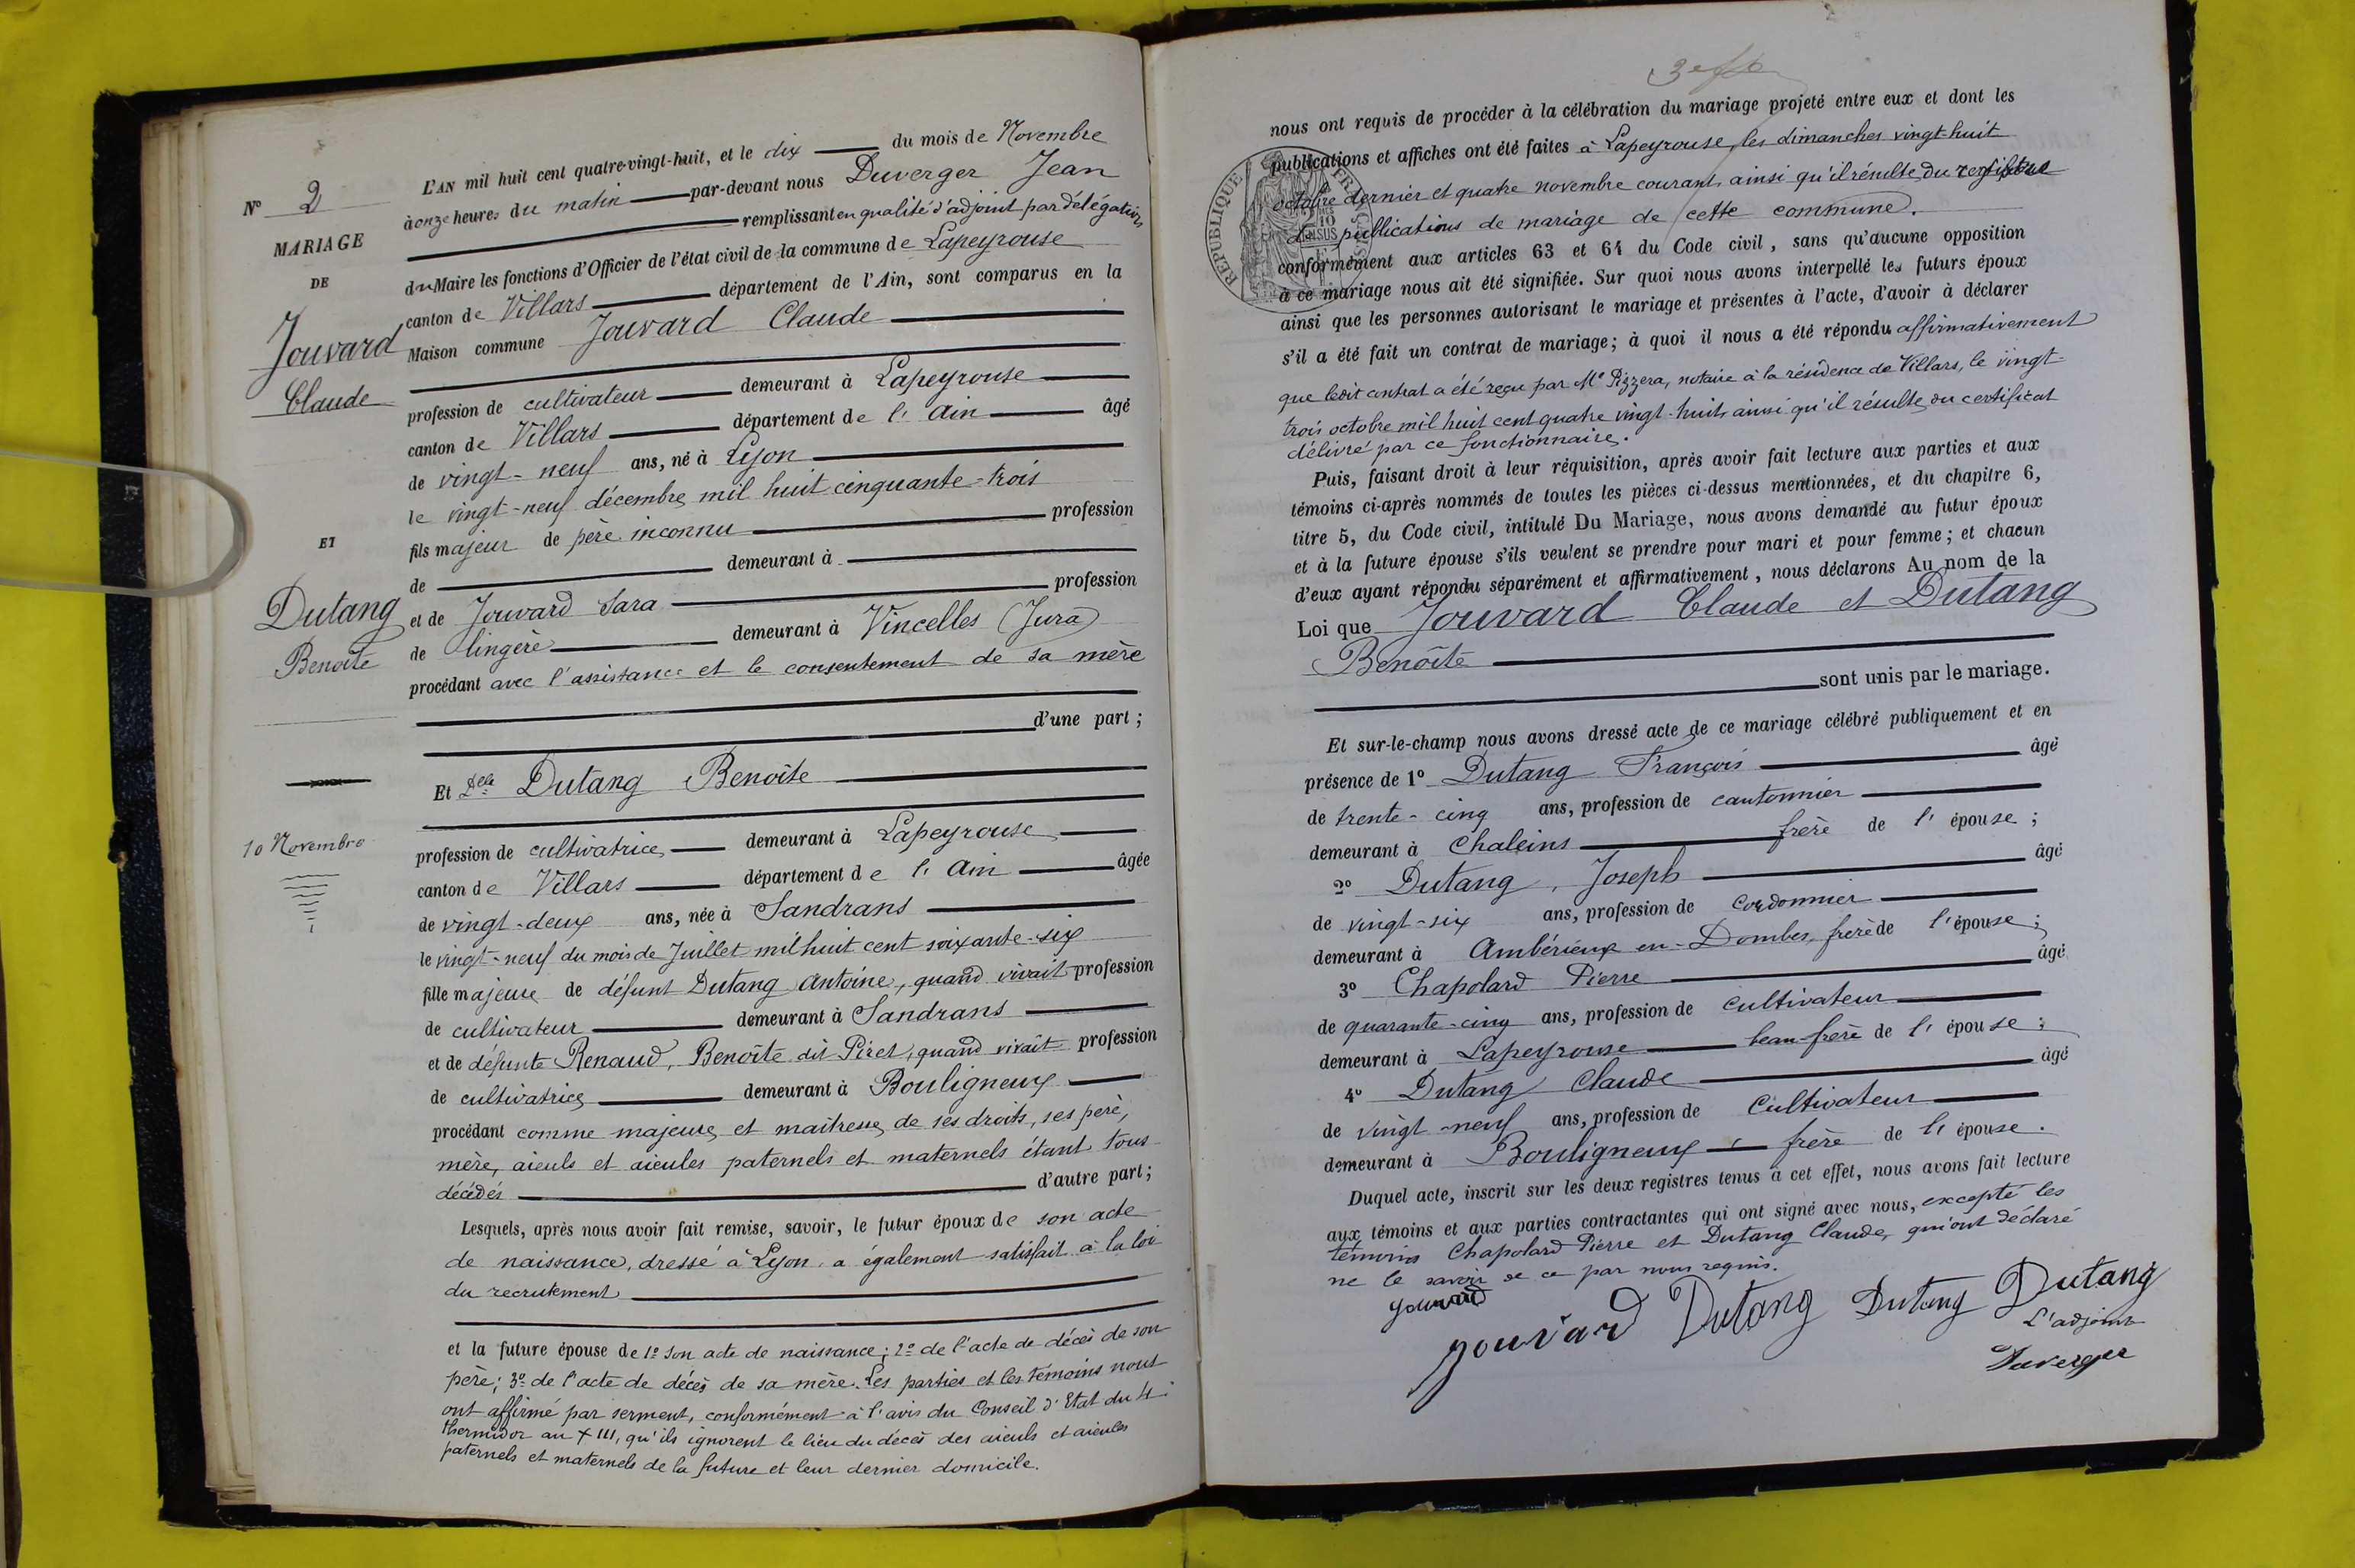 N° 2
MARIAGE
DE
Jouvard
Claude
ET
Dutang
Benoîte
10 Novembre
L'AN mil huit cent quatre-vingt-huit, et le dix du mois de Novembre
à onze heures du matin par-devant nous Duverger Jean
remplissant en qualité d'adjoint par délégation
du Maire les fonctions d'Officier de l'état civil de la commune de Lapeyrouse
canton de Villars département de l'Ain, sont comparus en la
Maison commune Jouvard Claude
profession de cultivateur demeurant à Lapeyrouse
canton de Villars département de l'Ain âgé
de vingt-neuf ans, né à Lyon
le vingt-neuf décembre mil huit cinquante-trois
fils majeur de père inconnu profession
de demeurant à
et de Jouvard Sara profession
de lingère demeurant à Vincelles (Jura)
procédant avec l'assistance et le consentement de sa mère
d'une part ;
Et Delle Dutang Benoîte
profession de cultivatrice demeurant à Lapeyrouse
canton de Villars département de l'Ain âgée
de vingt-deux ans, née à Sandrans
le vingt-neuf du mois de Juillet mil huit cent soixante-six
fille majeure de défunt Dutang Antoine, quand vivait profession
de cultivateur demeurant à Sandrans
et de défunte Renaud, Benoîte dit Piret, quand vivait profession
de cultivatrice demeurant à Bouligneux
procédant comme majeure et maîtresse de ses droits, ses père,
mère, aieuls et aieules paternels et maternels étant tous
décédés d'autre part ;
Lesquels, après nous avoir fait remise, savoir, le futur époux de son acte
de naissance, dressé à Lyon, a également satisfait à la loi
du recrutement
et la future épouse de 1° son acte de naissance ; 2° de l'acte de décès de son
père ; 3° de l'acte de décès de sa mère. Les parties et les témoins nous
ont affirmé par serment, conformément à l'avis du Conseil d'Etat du 4
thermidor an XIII, qu'ils ignorent le lieu du décès des aieuls et aieules
paternels et maternels de la future et leur dernier domicile.
REPUBLIQUE FRANÇAISE
nous ont requis de procéder à la célébration du mariage projeté entre eux et dont les
publications et affiches ont été faites à Lapeyrouse, les dimanches vingt-huit
octobre dernier et quatre novembre courant, ainsi qu'il résulte du registre
de publications de mariage de cette commune.
conformément aux articles 63 et 64 du Code civil, sans qu'aucune opposition
à ce mariage nous ait été signifiée. Sur quoi nous avons interpellé les futurs époux
ainsi que les personnes autorisant le mariage et présentes à l'acte, d'avoir à déclarer
s'il a été fait un contrat de mariage ; à quoi il nous a été répondu affirmativement
que ledit contrat a été reçu par Me Pizzera, notaire à la résidence de Villars, le vingt-
trois octobre mil huit cent quatre vingt-huit, ainsi qu'il résulte du certificat
délivré par ce fonctionnaire.
Puis, faisant droit à leur réquisition, après avoir fait lecture aux parties et aux
témoins ci-après nommés de toutes les pièces ci-dessus mentionnées, et du chapitre 6,
titre 5, du Code civil, intitulé Du Mariage, nous avons demandé au futur époux
et à la future épouse s'ils veulent se prendre pour mari et pour femme ; et chacun
d'eux ayant répondu séparément et affirmativement, nous déclarons Au nom de la
Loi que Jouvard Claude et Dutang
Benoîte
sont unis par le mariage.
Et sur-le-champ nous avons dressé acte de ce mariage célébré publiquement et en
présence de 1° Dutang François âgé
de trente-cinq ans, profession de cantonnier
demeurant à Chaleins frère de l'épouse ;
2° Dutang, Joseph âgé
de vingt-six ans, profession de cordonnier
demeurant à Ambérieux en-Dombes, frère de l'épouse ;
3° Chapolard Pierre âgé
de quarante-cinq ans, profession de cultivateur
demeurant à Lapeyrouse beau-frère de l'épouse ;
4° Dutang Claude âgé
de vingt-neuf ans, profession de cultivateur
demeurant à Bouligneux frère de l'épouse.
Duquel acte, inscrit sur les deux registres tenus à cet effet, nous avons fait lecture
aux témoins et aux parties contractantes qui ont signé avec nous, excepté les
témoins Chapolard Pierre et Dutang Claude, qui ont déclaré
ne le savoir de ce par nous requis.
Jouvard
Jouvard Dutang Dutang Dutang
L'adjoint
Duverger